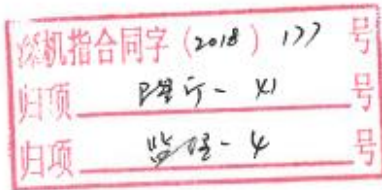 深机指合同字(2018)177号
归项 - X1 号
归项 监理-4 号